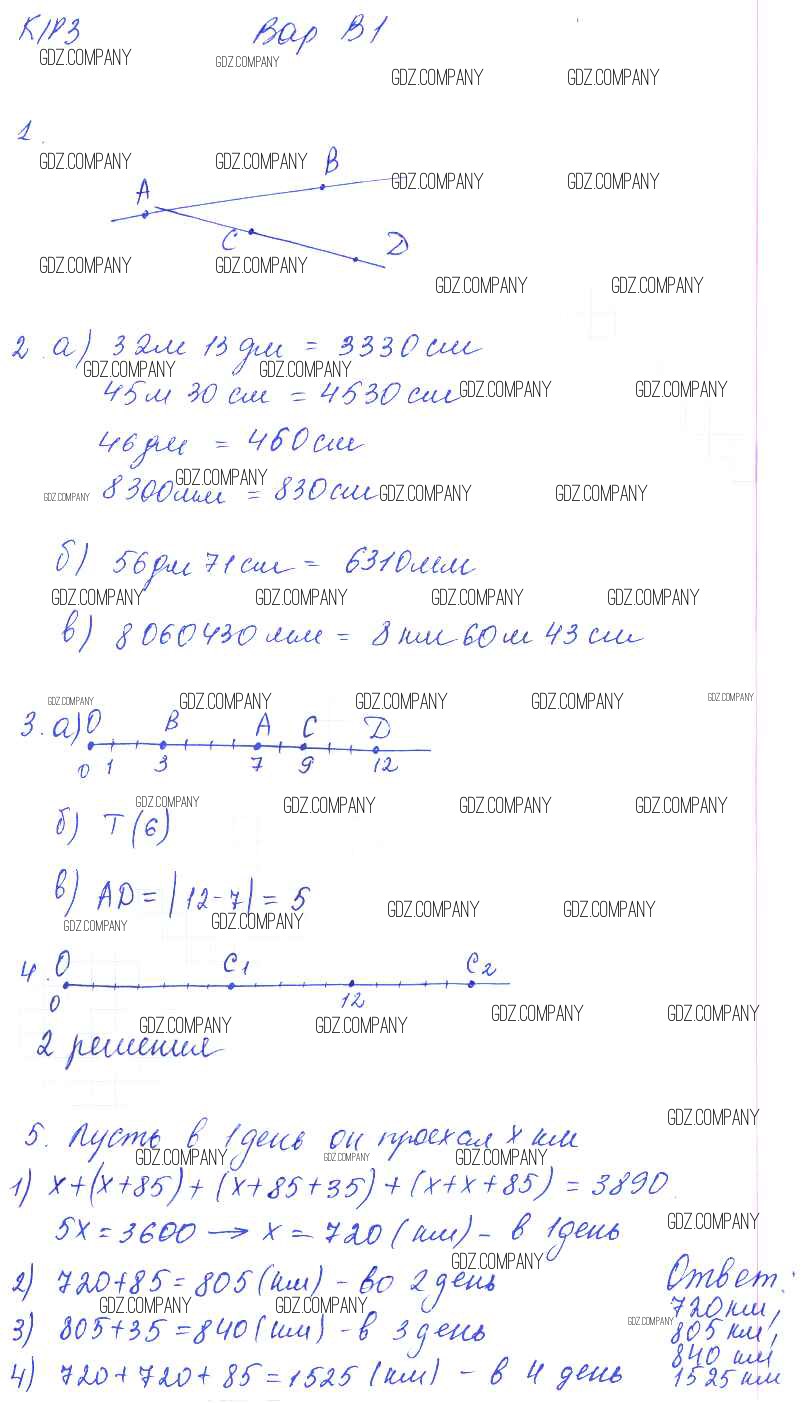 К/Р3 Вар В1
GDZ.COMPANY GDZ.COMPANY GDZ.COMPANY GDZ.COMPANY
1.
GDZ.COMPANY GDZ.COMPANY B GDZ.COMPANY GDZ.COMPANY
A
C D
GDZ.COMPANY GDZ.COMPANY GDZ.COMPANY GDZ.COMPANY
2. а) 32м 13дм = 3330см
GDZ.COMPANY GDZ.COMPANY GDZ.COMPANY GDZ.COMPANY
45м 30см = 4530см
46дм = 460см
GDZ.COMPANY GDZ.COMPANY GDZ.COMPANY GDZ.COMPANY
8300мм = 830см
б) 56дм 71см = 6310мм
GDZ.COMPANY GDZ.COMPANY GDZ.COMPANY GDZ.COMPANY
в) 8060430мм = 8км 60м 43см
GDZ.COMPANY GDZ.COMPANY GDZ.COMPANY GDZ.COMPANY GDZ.COMPANY
3. а) O B A C D
0 1 3 7 9 12
GDZ.COMPANY GDZ.COMPANY GDZ.COMPANY GDZ.COMPANY
б) T(6)
в) AD = |12-7| = 5
GDZ.COMPANY GDZ.COMPANY GDZ.COMPANY GDZ.COMPANY
4. O C1 C2
0 12
GDZ.COMPANY GDZ.COMPANY GDZ.COMPANY GDZ.COMPANY
2 решения
GDZ.COMPANY
5. Пусть в 1 день он проехал x км
GDZ.COMPANY GDZ.COMPANY GDZ.COMPANY
1) x+(x+85)+(x+85+35)+(x+x+85) = 3890
5x = 3600 → x = 720 (км) - в 1 день
GDZ.COMPANY
GDZ.COMPANY
2) 720+85 = 805 (км) - во 2 день
Ответ:
GDZ.COMPANY GDZ.COMPANY 720 км,
3) 805+35 = 840 (км) - в 3 день GDZ.COMPANY 805 км,
840 км
4) 720+720+85 = 1525 (км) - в 4 день 1525 км